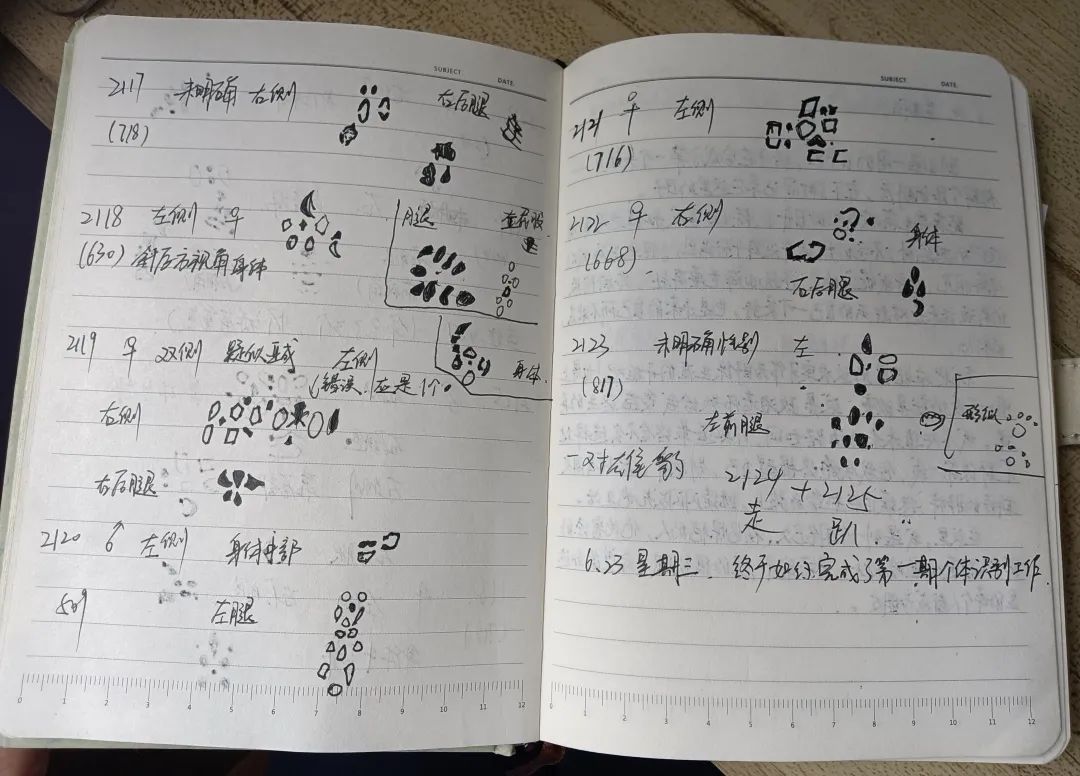 SUBJECT DATE
2117 未明确 右侧 右后腿
(718)
2118 左侧 ♀
(630) 斜后方视角 身体
后腿
身体
2119 ♀ 双侧 疑似亚成 左侧
(错误,应是1个。
右侧
右后腿
2120 ♂ 左侧 身体中部
509 左腿
0 1 2 3 4 5 6 7 8 9 10 11 12
SUBJECT DATE
2121 ♀ 左侧
(716)
2122 ♀ 右侧 身体
(668)
右后腿
2123 未明确性别 左
(817)
左前腿 形似
一对 豹 2124 + 2125
走 趴
6.23 星期三. 终于如约完成了第一期个体识别工作.
0 1 2 3 4 5 6 7 8 9 10 11 12